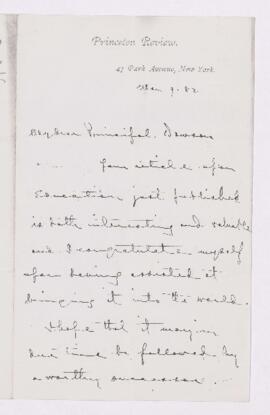 Princeton Review.
47 Park Avenue, New York.
9. 82
My dear Principal Dawson
Your article upon
Education just published
is both interesting and valuable
and I congratulate myself
upon having assisted at
bringing it into the world.
I hope that it may in
due time be followed by
a worthy successor.